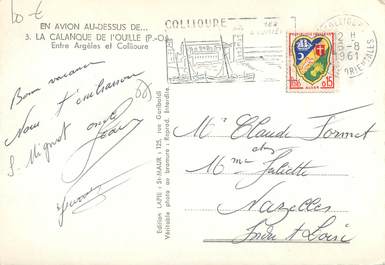 10 €
EN AVION AU-DESSUS DE...
3. LA CALANQUE DE L'OUILLE (P.-O.)
Entre Argelès et Collioure
COLLIOURE
12 H
8-8
1961
ORIENTALES
0,15
Bon vacance
Nous t'embrassons
S. Mignot
Edition LAPIE : St-MAUR : 125, rue Garibaldi
Véritable photo au bromure : Reprod. Interdite.
Mr Claude
et
Mme Juliette
Nazelles
Indre et Loire